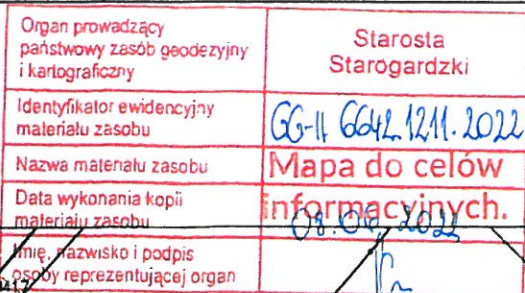 Organ prowadzący
państwowy zasób geodezyjny
i kartograficzny
Starosta
Starogardzki
Identyfikator ewidencyjny
materiału zasobu
GG-II 6642.1211.2022
Nazwa materiału zasobu
Mapa do celów
informacyjnych.
Data wykonania kopii
materiału zasobu
2022
Imię, nazwisko i podpis
osoby reprezentującej organ